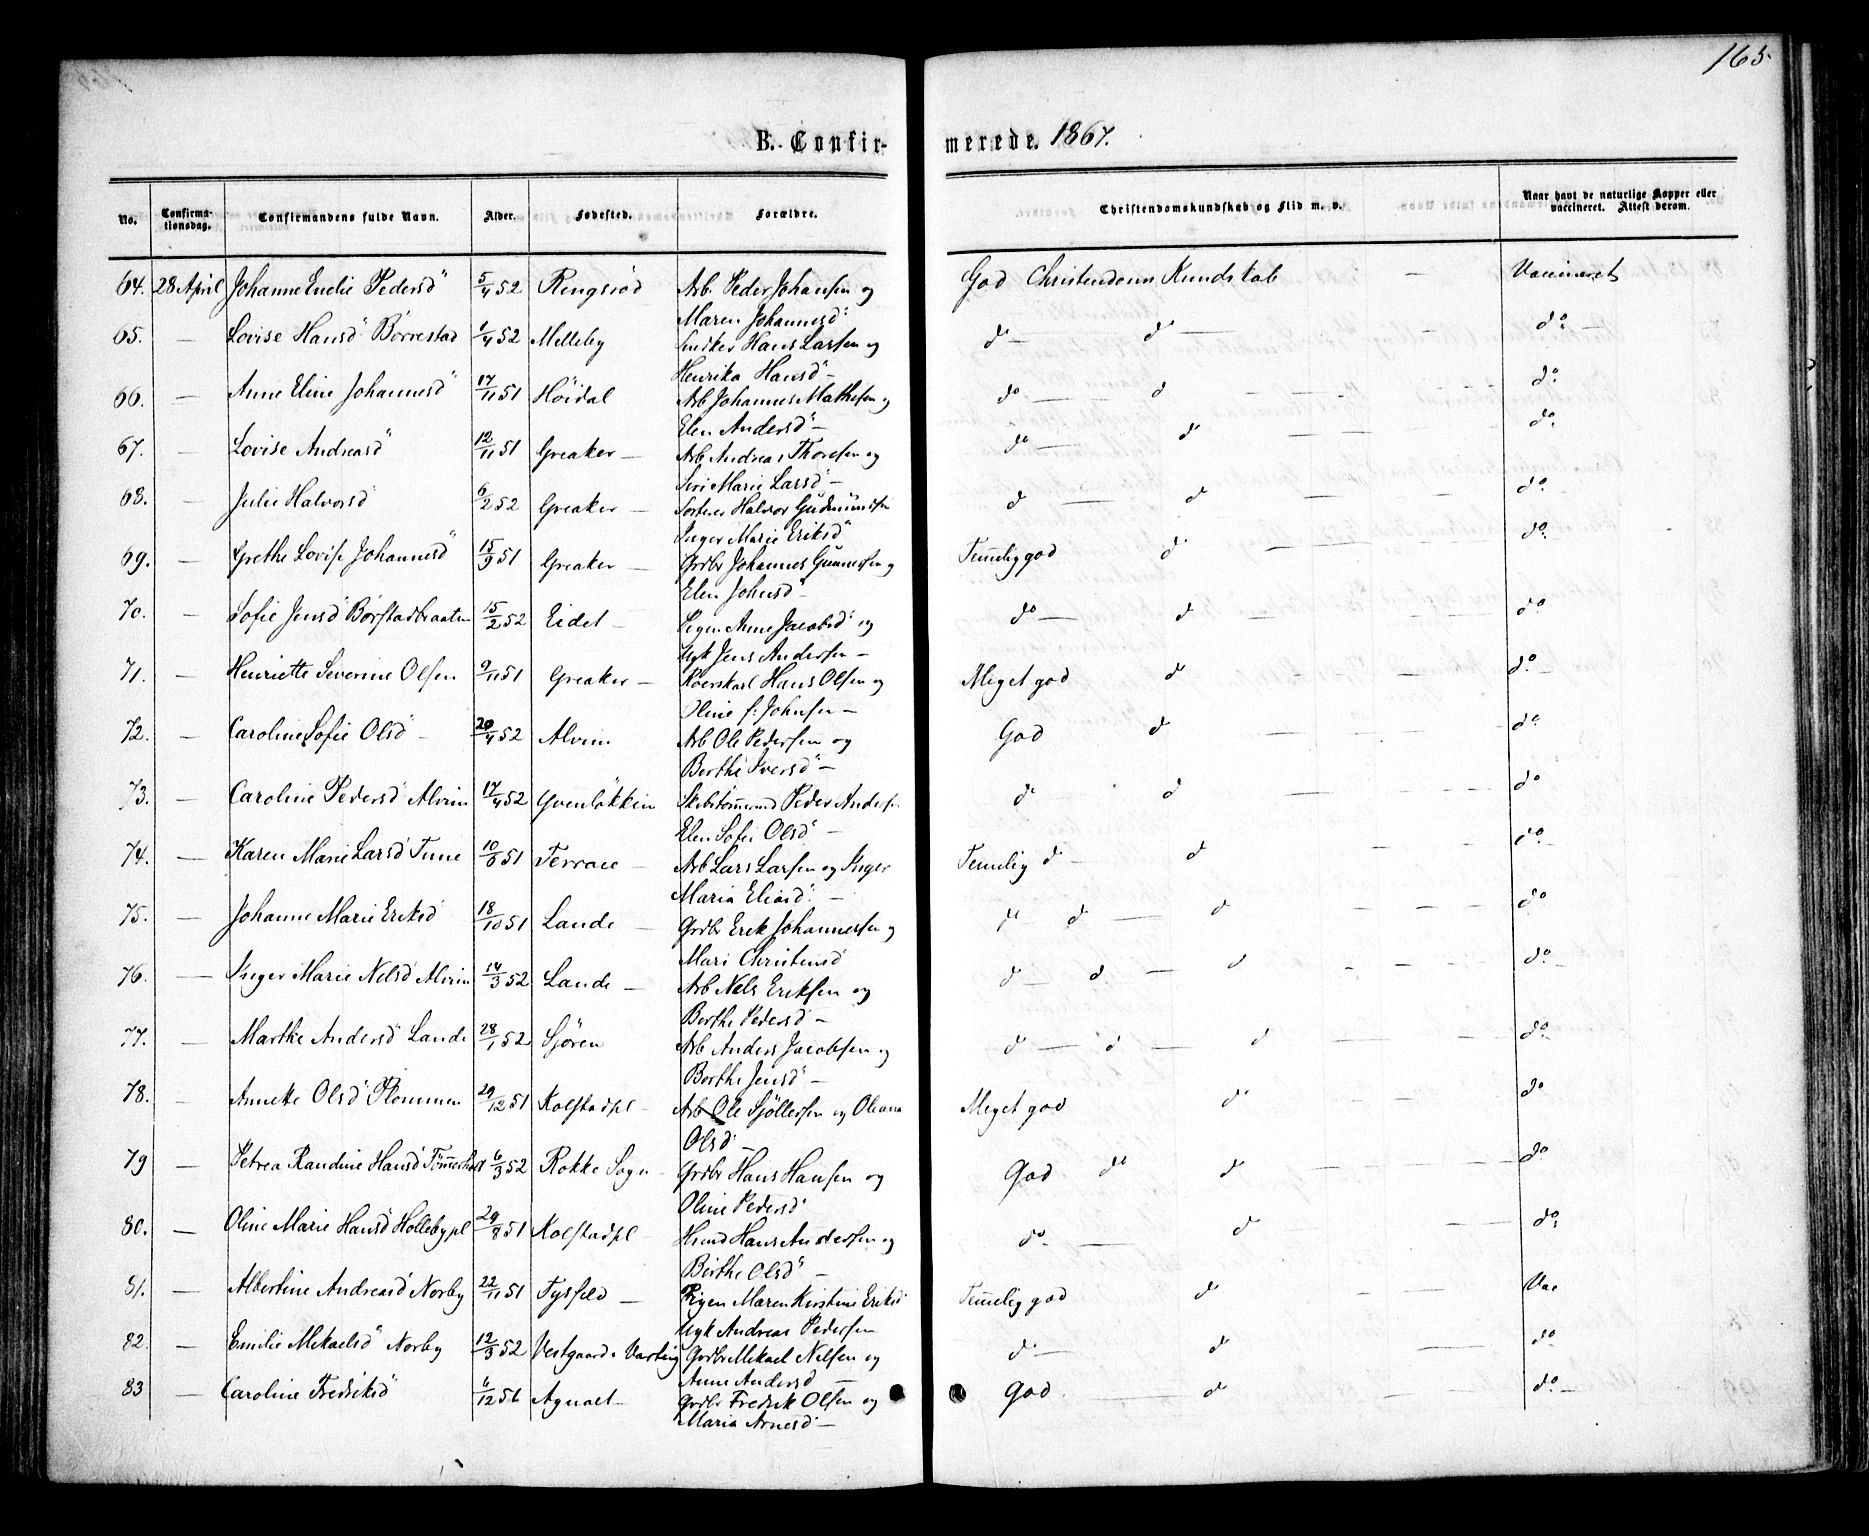 165.
B. Confirmerede. 1867.
No. Confirmationsdag. Confirmandens fulde Navn. Alder. Fødested. Forældre. Christendomskundskab og Flid m. v. Naar havt de naturlige Kopper eller vaccineret. Attest derom.
64. 28 April Johanne Emelie Pedersd" 5/4 52 Ringsrød Arb. Peder Johansen og Maren Johannesd" God Christendoms Kundskab — Vaccineret
65. — Lovise Hansd" Børrestad 1/4 52 Melleby Snedker Hans Larsen og Henrika Hansd" — do — do — do. —
66. — Anne Eline Johannesd" 17/11 51 Höidal Arb Johannes Mathesen og Elen Andersd" — do — d — do.
67. — Lovise Andreasd" 12/11 51 Greaker — Arb Andreas Thoresen og Siri Marie Larsd — do — do — do.
68. — Julie Halvorsd" 6/2 52 Greaker — Sorterer Halvor Gudmundsen Inger Marie Eriksd" d — d — do.
69. — Grethe Lovise Johannesd" 15/9 51 Greaker — Grdbr Johannes Gunnersen og Elen Johnsd" Temelig god d — do.
70. — Sofie Jensd" Børstadbraaten 15/2 52 Eidet — Pigen Anne Jacobsd" og Ugk Jens Andersen — do — d — do
71. — Henriette Severine Olsen 9/11 51 Greaker — Roerskarl Hans Olsen og Oline f: Johnsen — Meget god d — do. —
72. — Caroline Sofie Olsd" — 20/4 52 Alvim Arb Ole Pedersen og Berthe Iversd" — God d — do.
73. — Caroline Pedersd" Alvim 17/4 52 Gvenlökken Skibstömmermd Peder Andersen Elen Sofie Olsd" — d — d — do
74. — Karen Marie Larsd" Tune 10/6 51 Terraie — Arb Lars Larsen og Inger Maria Eliasd" — Temelig d — d — do.
75. — Johanne Marie Eriksd" 18/10 51 Lande — Grdbr Erik Johannesen og Mari Christensd d d — d — do
76. — Inger Marie Nelsd" Alvim 14/3 52 Lande — Arb Nels Eriksen og Berthe Pedersd — d — d. — d — do.
77. — Marthe Andersd" Lande 28/1 52 Sjøren Arb Anders Jacobsen og Berthe Jensd" — d — d — d — do.
78. — Annette Olsd" Plommen 29/12 51 Kolstadpl — Arb Ole Sjöllersen og Oleana Olsd" — Meget god d — do
79 — Petrea Randine Hansd" 6/3 52 Rokke Sogn — Grdbr Hans Hansen og Oline Pedersd" God do d — do
80. — Oline Marie Hansd" Hollebypl 29/8 51 Kolstadpl — Husmd Hans Andersen og Birthe Olsd" — do. — d — do.
81. — Albertine Andreasd" Norby 22/11 51 Tysfeld — Pigen Maren Kirstine Eriksd" Ugk Andreas Pedersen Temelig god d — Vac
82. — Emilie Mikaelsd" Norby 12/3 52 Vestgaard i Varteig Grdbr Mikael Nilsen og Anne Andersd — d. — d — do
83 — Caroline Fredriksd" 6/12 51 Agnalt — Grdbr Fredrik Olsen og Maria Arnesd" — God — d — do. —